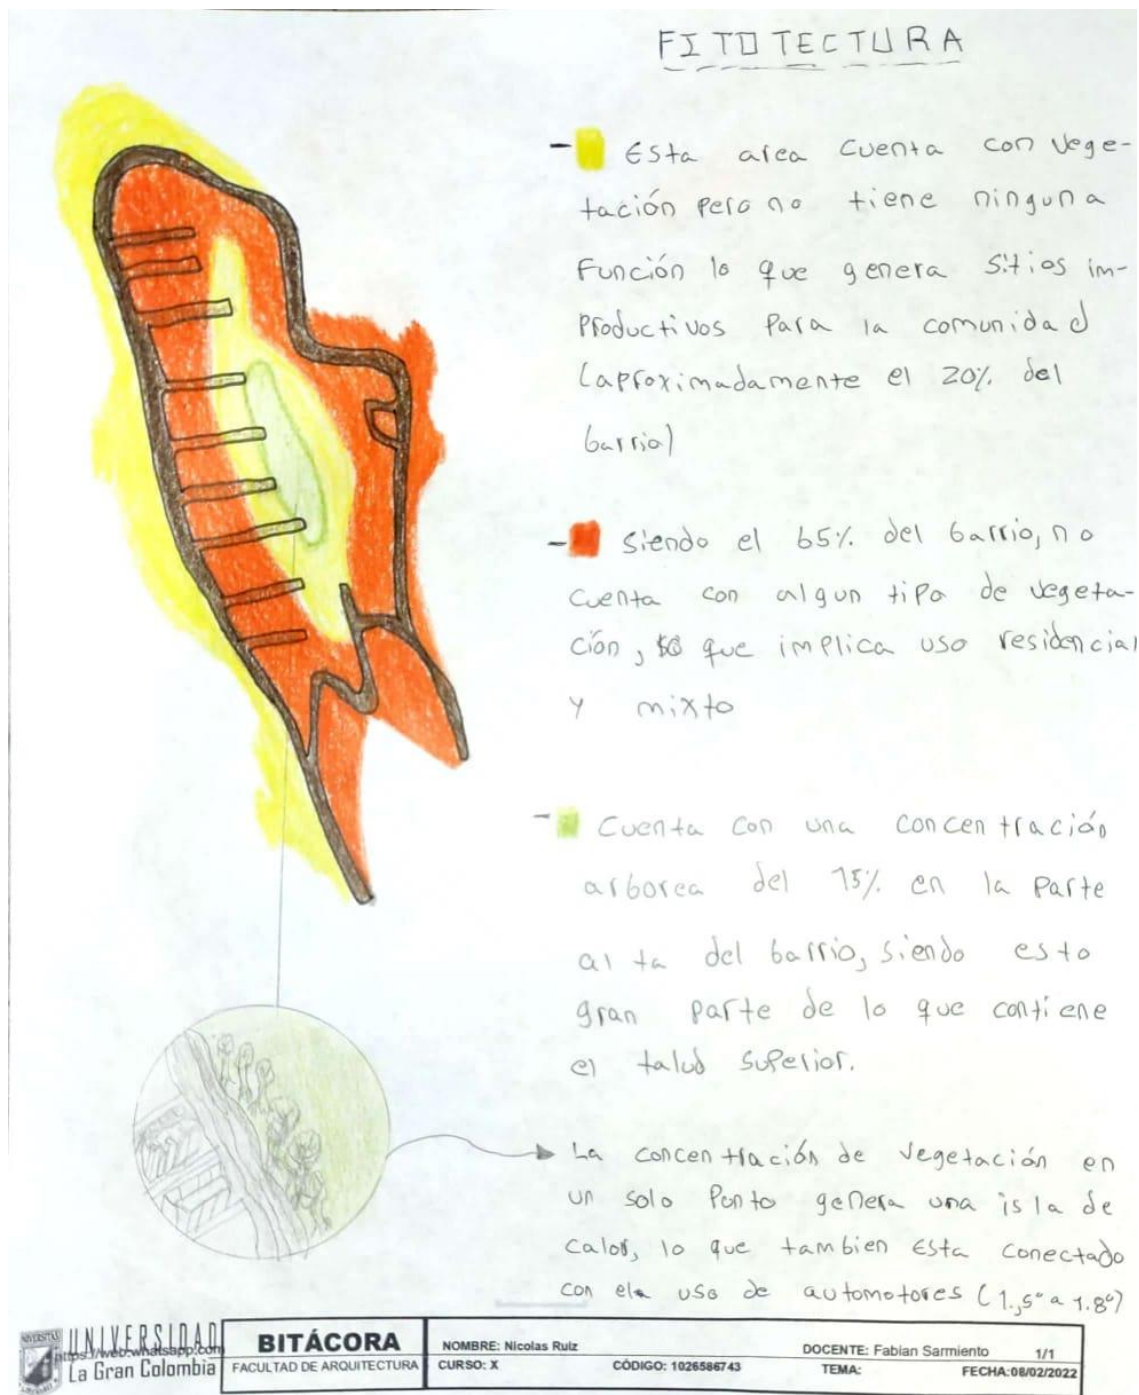 FITOTECTURA
- Esta area cuenta con vege-
tación pero no tiene ninguna
Función lo que genera sitios im-
Productivos Para la comunidad
(aproximadamente el 20% del
barrio)
- Siendo el 65% del barrio, no
cuenta con algun tipo de vegeta-
ción, que implica uso residencial
y mixto
- Cuenta con una concentración
arborea del 15% en la parte
alta del barrio, siendo esto
gran parte de lo que contiene
el talud superior.
La concentración de vegetación en
un solo Punto genera una isla de
calor, lo que tambien esta conectado
con el uso de automotores (1.,5° a 1.8°)
UNIVERSIDAD
https://web.whatsapp.com
La Gran Colombia
BITÁCORA
FACULTAD DE ARQUITECTURA
NOMBRE: Nicolas Ruiz
DOCENTE: Fabian Sarmiento 1/1
CURSO: X CÓDIGO: 1026586743 TEMA: FECHA:08/02/2022